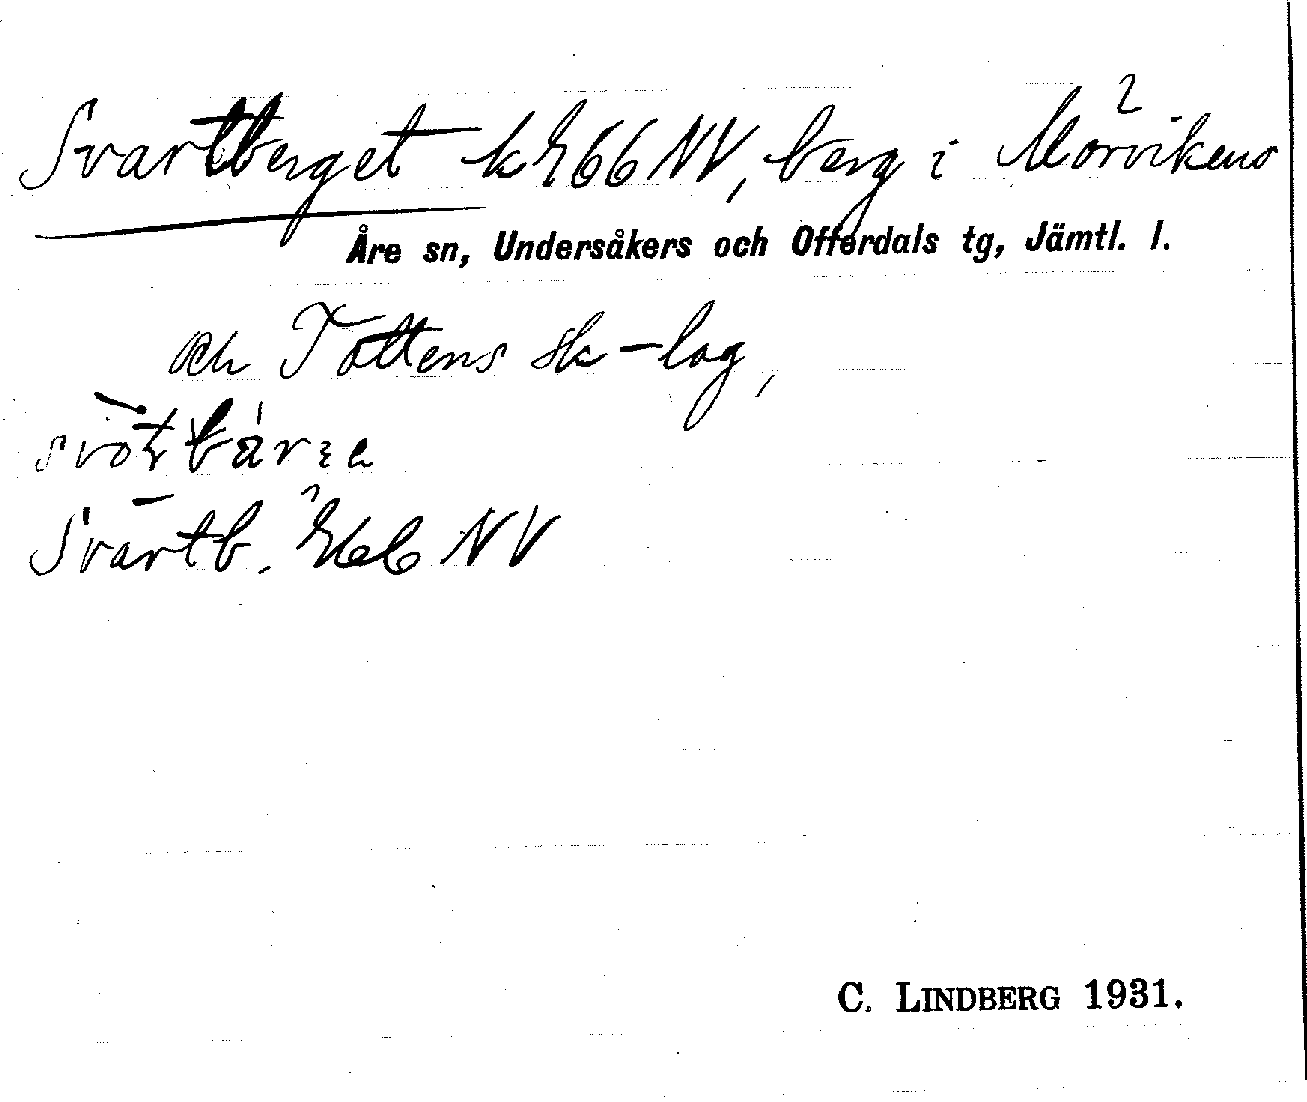 Svartberget k E66 NV, berg i Mörvikens
Åre sn, Undersåkers och Offerdals tg, Jämtl. l.
och Tottens sk-lag,
Svartb. E66 NV
C. LINDBERG 1931.